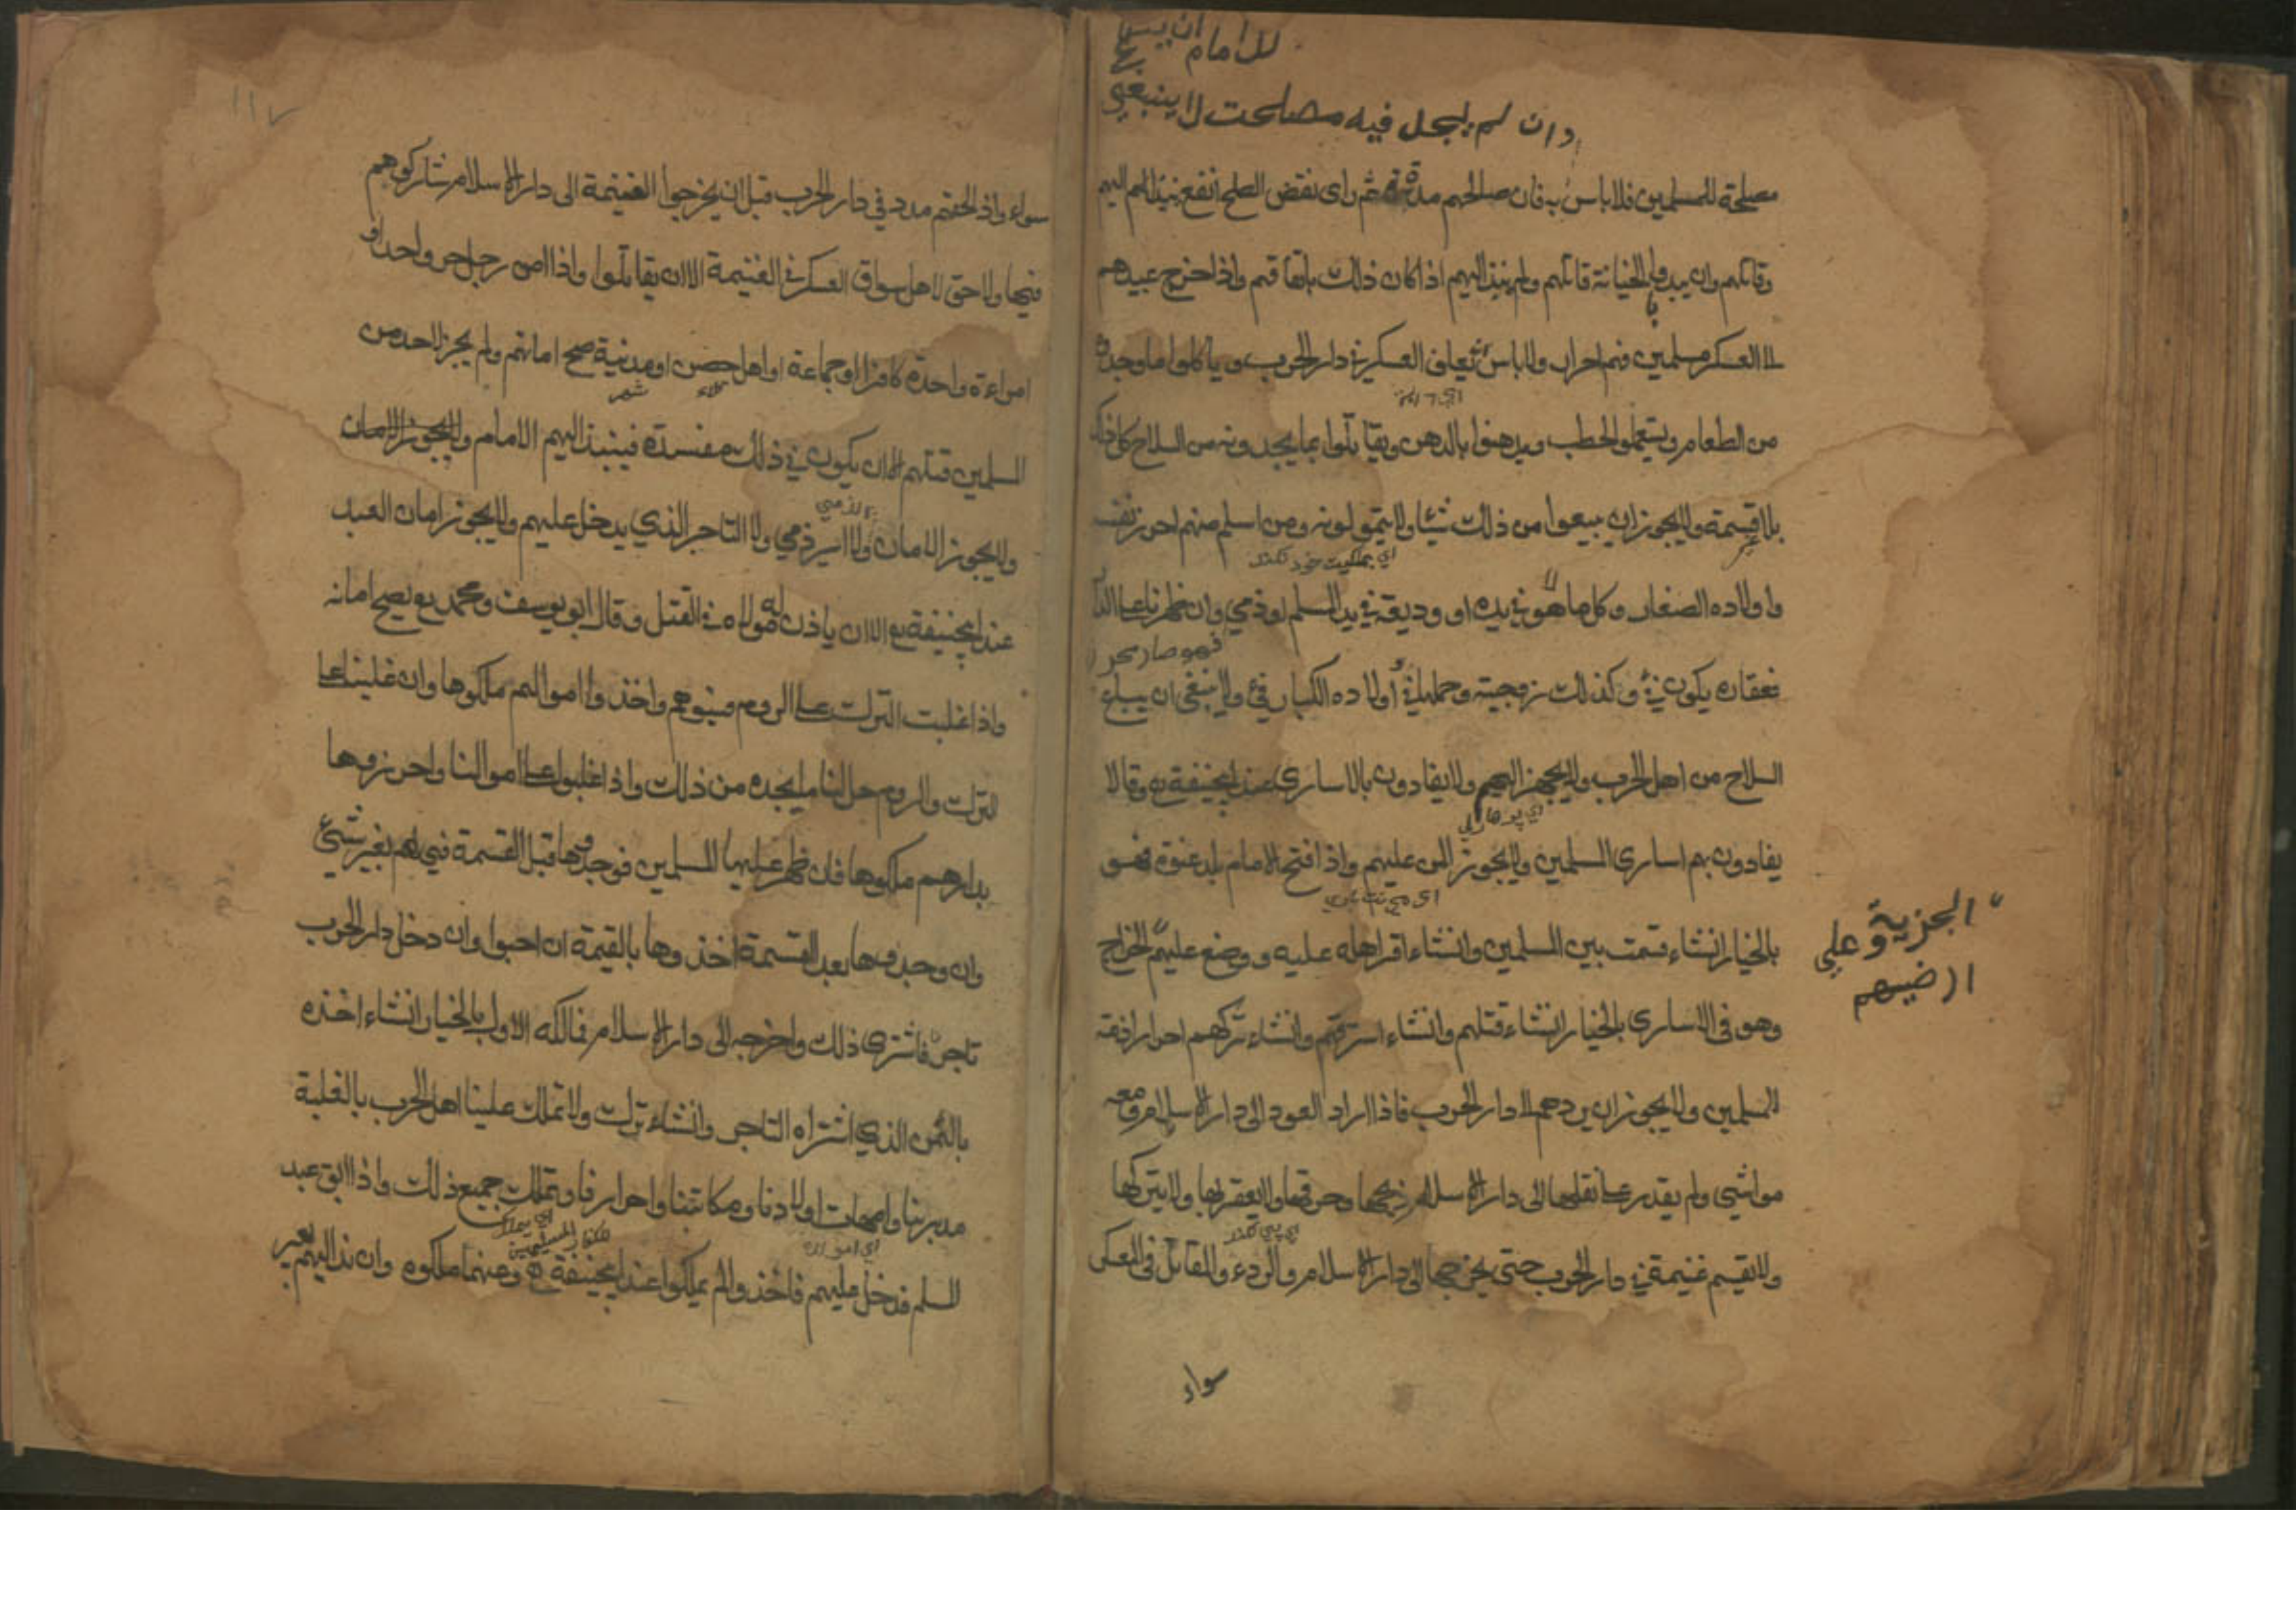 للامام ان يبيع
وان لم يجد فيه مصلحت لا ينبغي
مصلحة للمسلمين فلا باس به فان صالحهم مدة ثم راى نقض الصلح انفع نبذ اليهم
وقاتلهم وان بدوا بالخيانة قاتلهم ولم ينبذ اليهم اذا كان ذلك باتفاقهم واذا خرج عبيدهم
الا العسكر مسلمين فهم احرار ولا باس ان يعلف العسكر في دار الحرب وياكلوا ما وجدوه
من الطعام ويستعملوا الحطب ويدهنوا بالدهن ويقاتلوا بما يجدونه من السلاح كل ذلك
بلا قسمة ولا يجوز ان يبيعوا من ذلك شيئا ولا يتمولونه ومن اسلم منهم احرز نفسه
اي بملكيت خود نكند
واولاده الصغار وكل ما هو في يده او وديعة في يد المسلم او ذمي وان ظهرنا على الدار
فهو صار حر
فعقاره يكون فئ وكذلك زوجيته وحملها فئ اولاده الكبار فئ ولا ينبغى ان يباع
السلاح من اهل الحرب ولا يجهز اليهم ولا يفادون بالاسارى عند ابيحنيفة رح وقالا
يفادون بهم اسارى المسلمين ولا يجوز المن عليهم واذا افتح الامام بلد عنوة فهو
بالخيار انشاء قسمت بين المسلمين وانشاء اقر اهله عليه ووضع عليهم الخراج
الجزية وعلى
ارضيهم
وهو فى الاسارى بالخيار انشاء قتلهم وانشاء استرقهم وانشاء تركهم احرار اذمة
المسلمين ولا يجوز ان يردهم الا دار الحرب فاذا اراد العود الى دار الاسلام ومعه
مواشي ولم يقدر على نقلها الى دار الاسلام ذبحها وحرقها ولا يعقربها ولا يتركها
اي پي نكند
ولا يقسم غنيمة في دار الحرب حتى يخرجها الى دار الاسلام والردء والمقاتل فى العسكر
سواء
١١٧
سواء واذ الحقتم مدد في دار الحرب قبل ان يخرجوا الغنيمة الى دار الاسلام شاركوهم
فيها ولا حق لاهل سواق العسكر في الغنيمة الا ان يقاتلوا واذا امن رجل حر واحد او
امراءة واحدة كافرا او جماعة او اهل حصن او مدنية صح امانهم ولم يجز لاحد من
قلاء
شهر
المسلمين قتلهم الا ان يكون في ذلك مفسدة فينبذ اليهم الامام ولا يجوز الامان
الذمي
ولا يجوز الامان ولا اسير ذمي ولا التاجر الذي يدخل عليهم ولا يجوز امان العبد
عند ابيحنيفة رح الا ان ياذن له مولاه في القتل وقال ابو يوسف ومحمد رح يصح امانه
واذا غلبت الترك على الروم فسبوهم واخذوا اموالهم ملكوها وان غلبنا على
الترك والروم حل لنا ما يجده من ذلك واذا غلبوا على اموالنا واحرزوها
بدارهم ملكوها فان ظهر عليها المسلمين فوجدوها قبل القسمة فهي لهم بغير شئ
وان وجدوها بعد القسمة اخذوها بالقيمة ان احبوا وان دخل دار الحرب
تاجر فاشترى ذلك واخرجه الى دار الاسلام فمالكه الاول بالخيار انشاء اخذه
بالثمن الذي اشتراه التاجر وانشاء ترك ولا تملك علينا اهل الحرب بالغلبة
مدبرينا وامهات اولادنا ومكاتبنا واحرارفا وتملك جميع ذلك واذا ابق عبد
المسلم فدخل عليهم فاخذوا لم يملكوا عند ابيحنيفة رح وعنهما ملكوه وان ند اليهم بعير